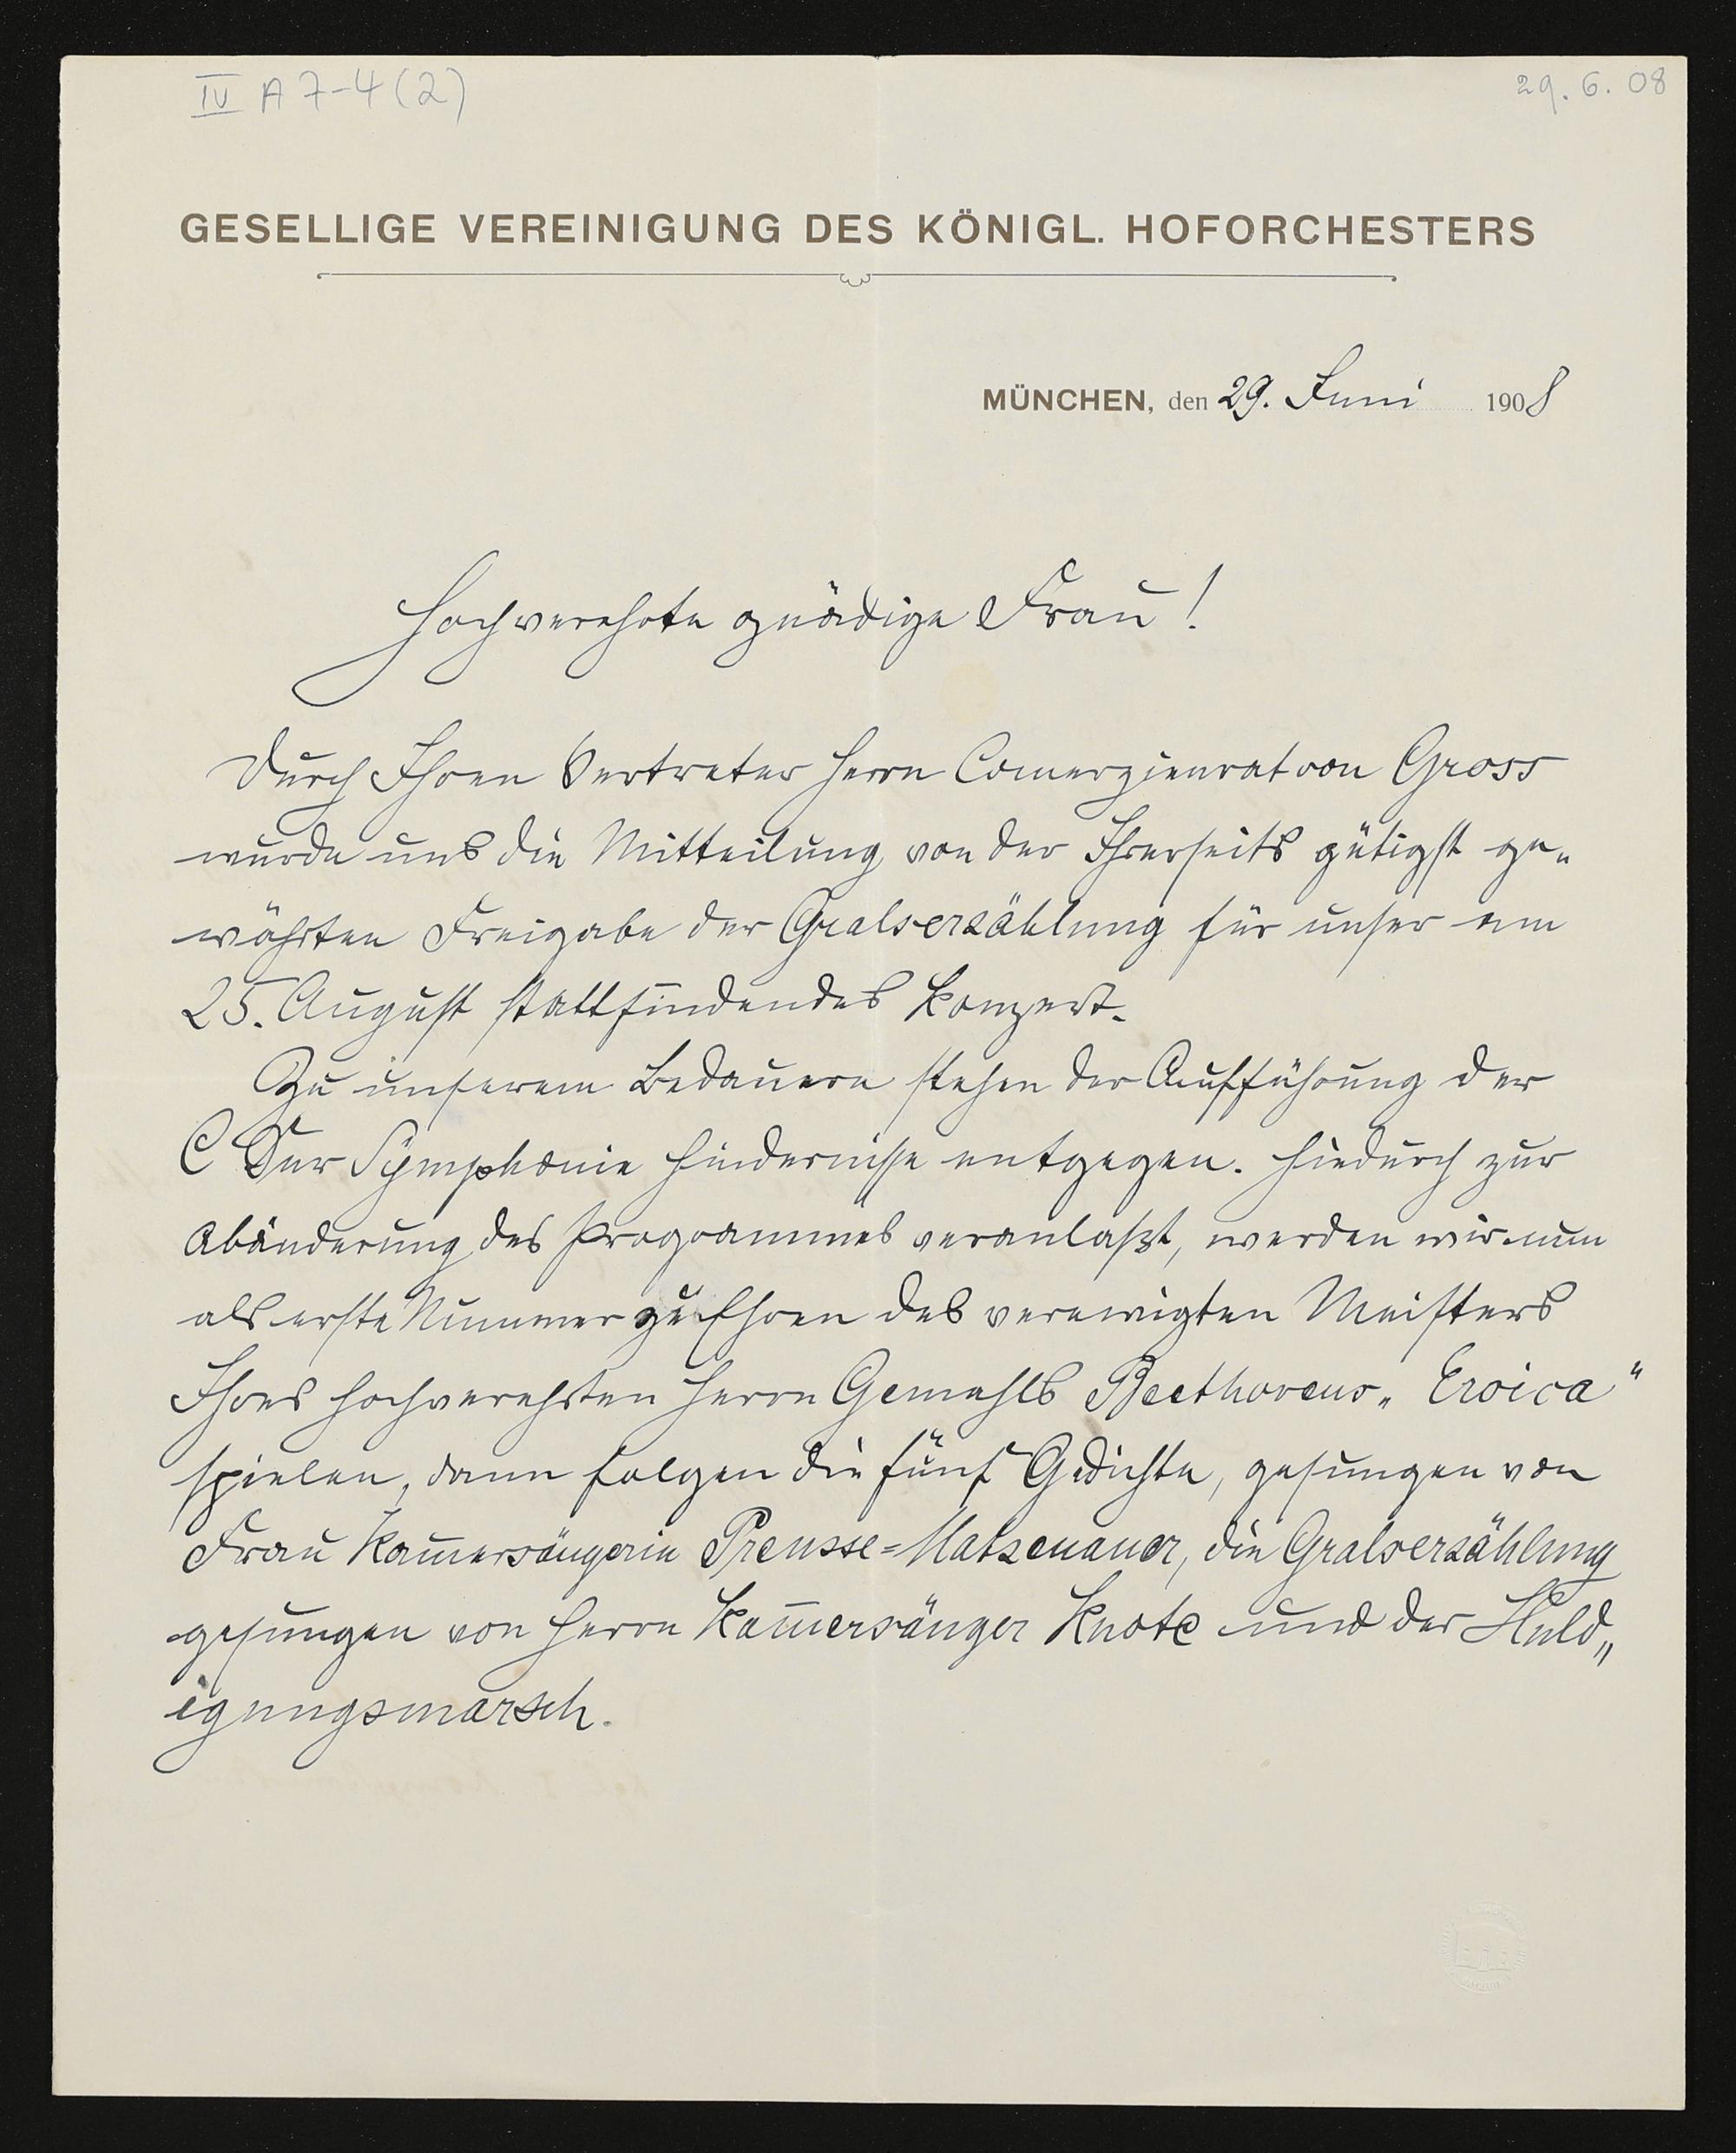 IV A 7-4 (2)
29. 6. 08
GESELLIGE VEREINIGUNG DES KÖNIGL. HOFORCHESTERS
MÜNCHEN, den 29. Juni 1908
Hochverehrte gnädige Frau!
Durch Ihren Vertreter Herrn Com̅erzienrat von Gross
wurde uns die Mitteilung von der Ihrerseits gütigst ge„
währten Freigabe der Gralserzählung für unser am
25. August stattfindendes Konzert.
Zu unserem Bedauern stehen der Aufführung der
C Dur Symphonie Hindernisse entgegen. Hiedurch zur
Abänderung des Programmes veranlaßt, werden wir nun
als erste Nummer zu Ehren des verewigten Meisters
Ihres hochverehrten Herrn Gemahls Beethovens „Eroica"
spielen, dann folgen die fünf Gedichte, gesungen von
Frau Kam̅ersängerin Preusse=Matzenauer, die Gralserzählung
gesungen von Herrn Kam̅ersänger Knote und der Huld„
igungsmarsch.